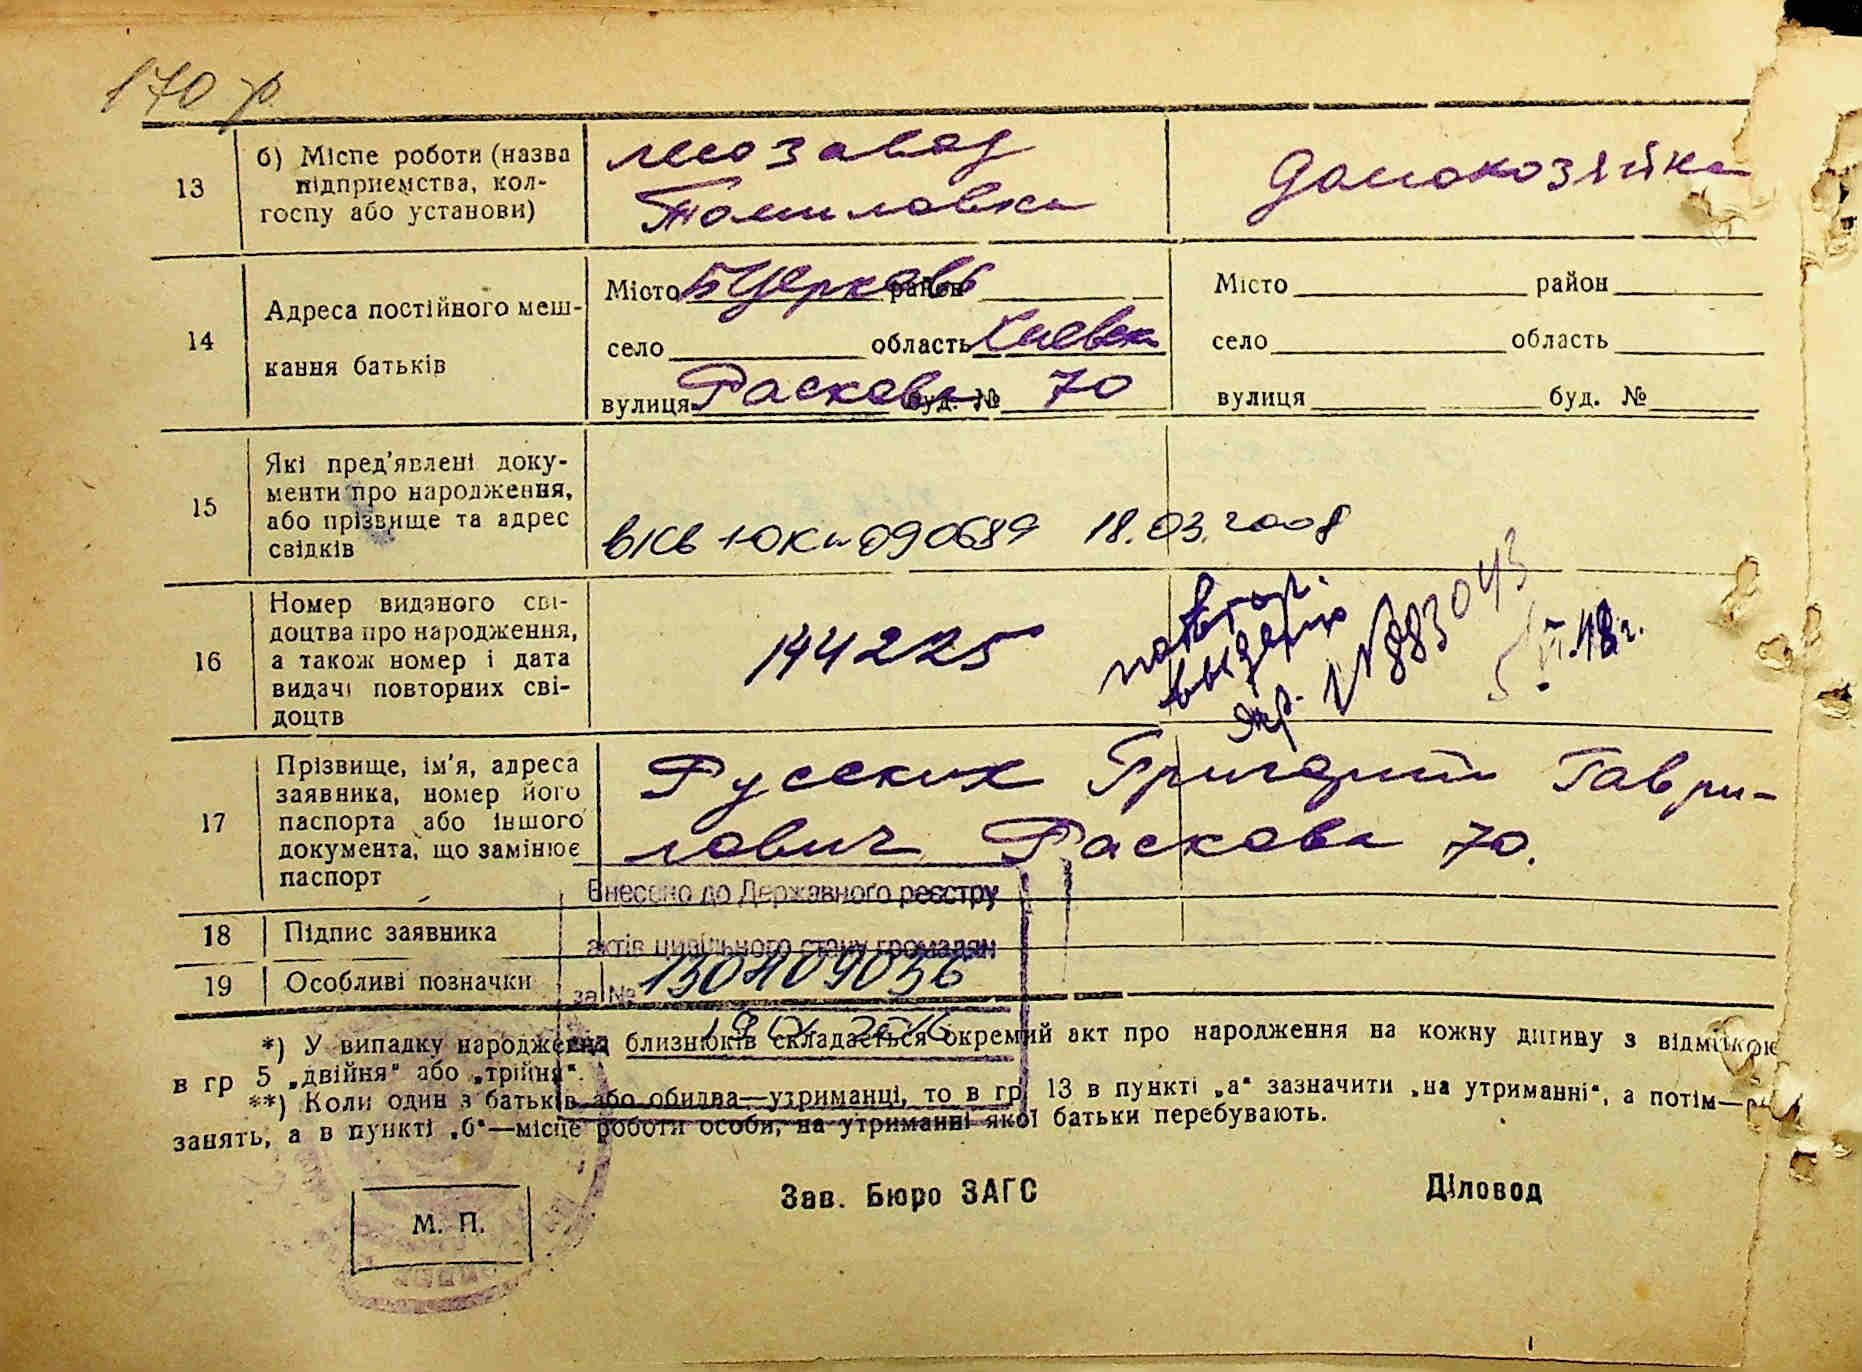 170 р
13
б) Місце роботи (назва
підприємства, кол-
госпу або установи)
лесозавод
Томиловка
домохозяйка
14
Адреса постійного меш-
кання батьків
Місто Б Церковь район
село область Киевск
вулиця Раскова буд. № 70
Місто район
село область
вулиця буд. №
15
Які пред'явлені доку-
менти про народження,
або прізвище та адрес
свідків
090689 18.03.2008
16
Номер виданого сві-
доцтва про народження,
а також номер і дата
видачі повторних сві-
доцтв
144225
повтор.
выдано
№883043
5 VI.48г.
17
Прізвище, ім'я, адреса
заявника, номер його
паспорта або іншого
документа, що замінює
паспорт
Русских Григорий Гаври-
лович Раскова 70.
Внесено до Державного реєстру
18
Підпис заявника
актів цивільного стану громадян
19
Особливі позначки
за №
*) У випадку народження близнюків складається окремий акт про народження на кожну дитину з відміткою
в гр 5 „двійня" або „трійня".
**) Коли один з батьків або обидва—утриманці, то в гр. 13 в пункті „а" зазначити „на утриманні", а потім—
занять, а в пункті „б"—місце роботи особи, на утриманні якої батьки перебувають.
Зав. Бюро ЗАГС
Діловод
М. П.